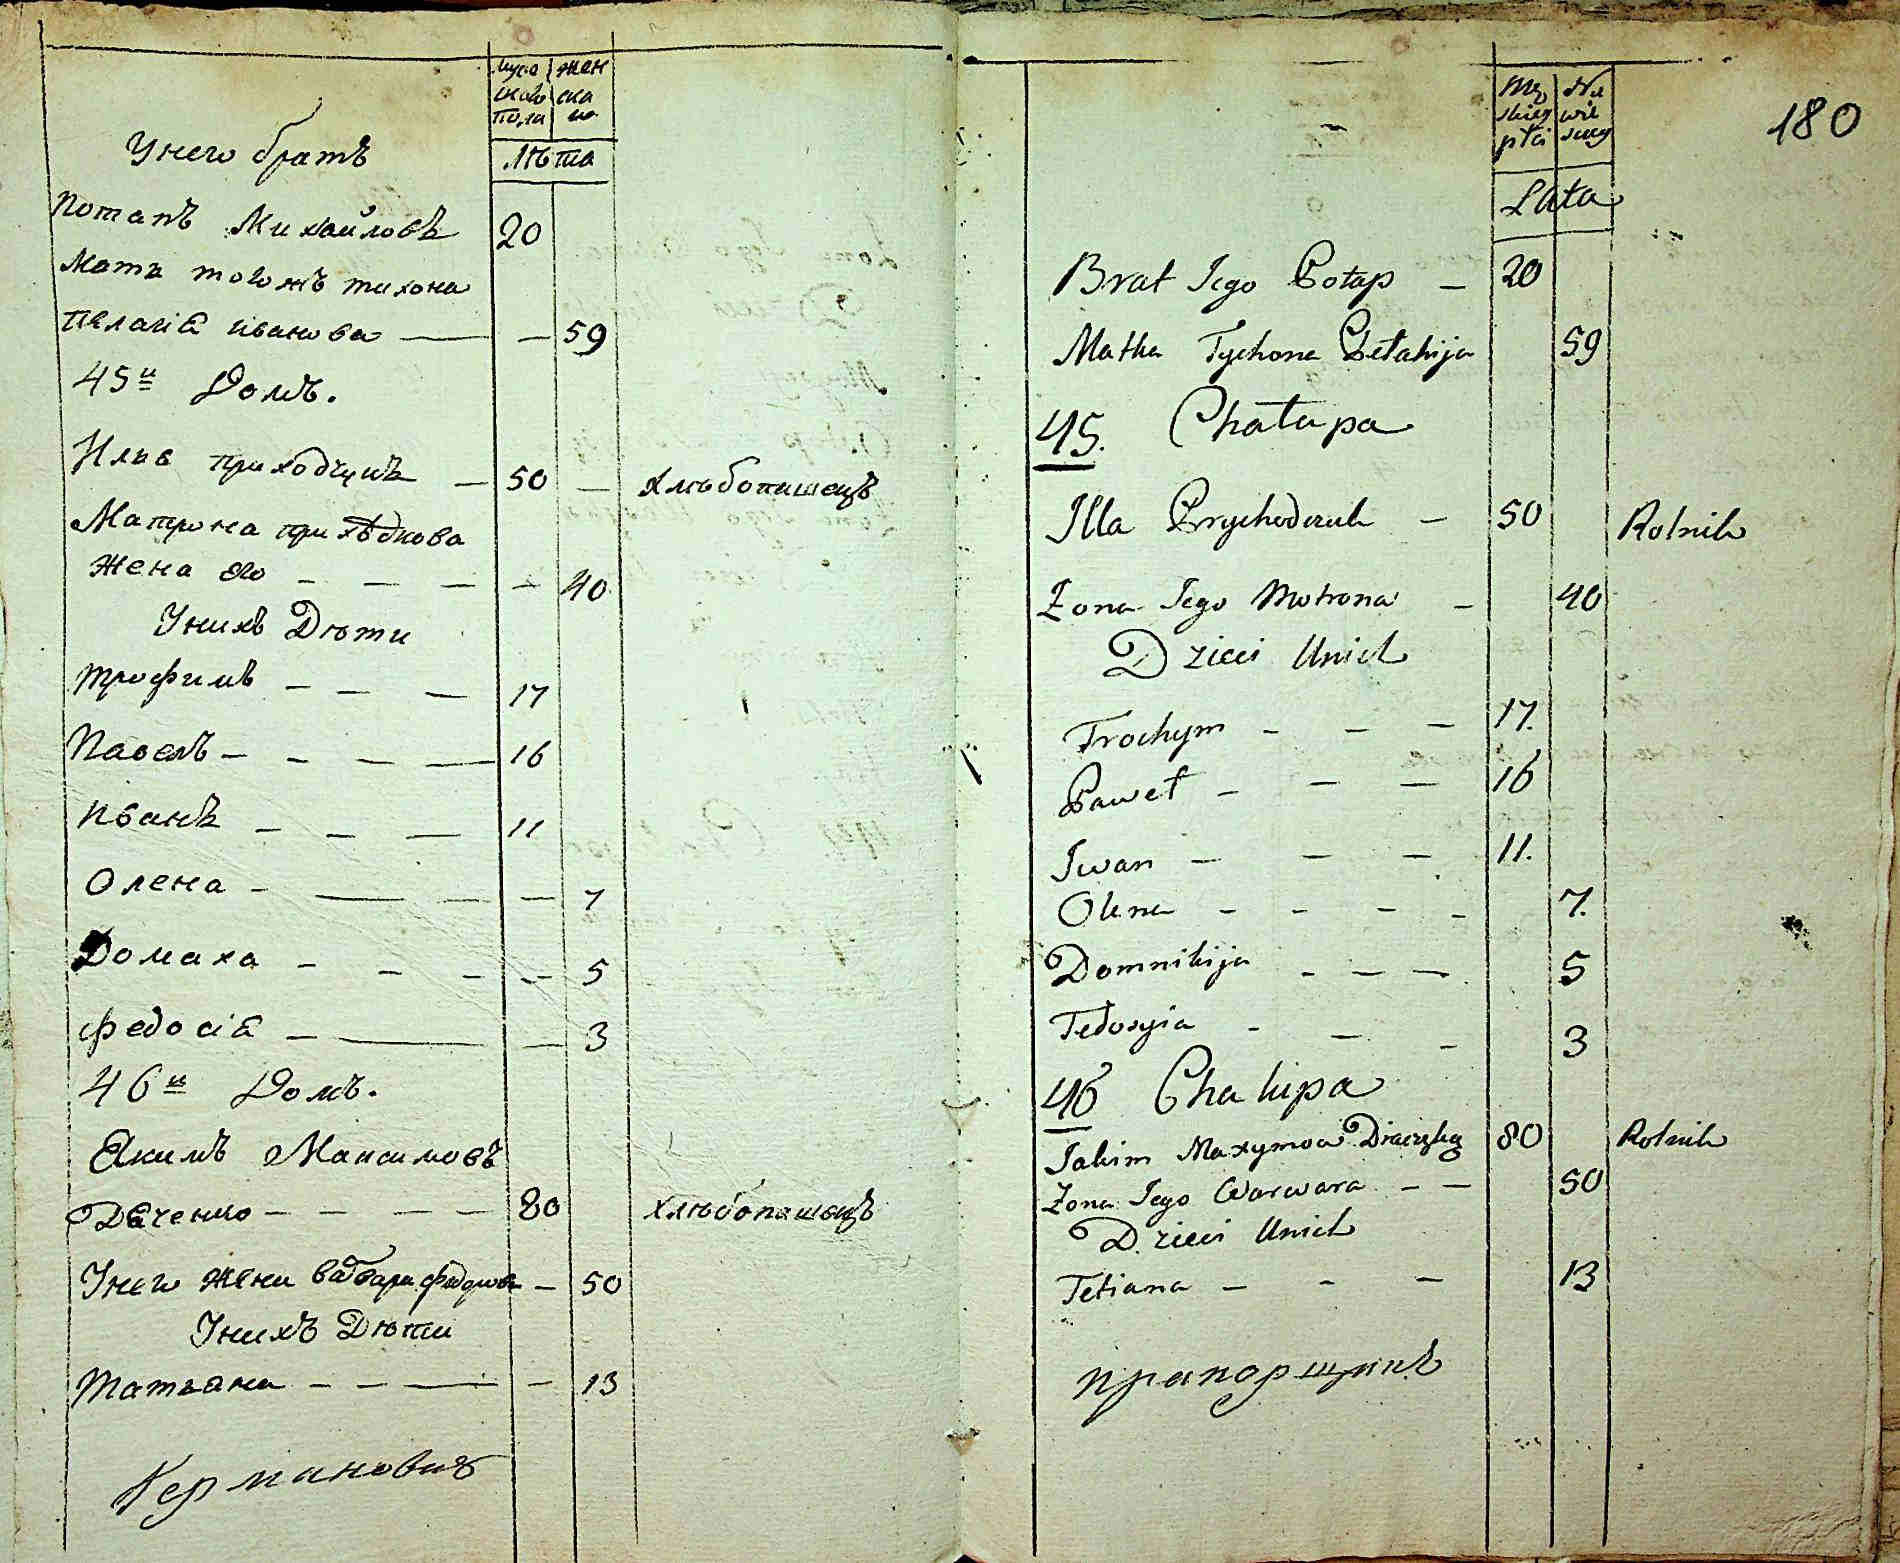 мужеска пола
женска го
Лѣта
Унего братъ
Потапъ Михайловъ 20
Мати тогожъ тихона
Пелагіа иванова — — 59
45й Домъ.
Илиа приходчукъ — 50 — хлѣбопашецъ
Матрона приходкова
жена его — — — — 40
Унихъ Дѣти
трофимъ — — — 17
Павелъ — — — — 16
иванъ — — — 11
Олена — — — — 7
Домаха — — — — 5
федосіа — — — 3
46й Домъ.
Якимъ Максимовъ
Дяченко — — — — 80 хлѣбопашецъ
Унего жени варвари федоров — 50
Унихъ Дѣти
татьана — — — — 13
Кермановичъ
180
Męskiey płci
Niewieściey
Lata
Brat Jego Potap — 20
Matka Tychona Pełahija 59
45. Chałupa
Illa Prychodczuk — 50 Rolnik
Żona Jego Motrona — 40
Dzieci Unich
Trochym — — — 17.
Paweł — — — 16
Iwan — — — 11.
Olena — — — — 7.
Domnikija — — — 5
Tedosyia — — — 3
46 Chalupa
Jakim Maxymow Diaczenko 80 Rolnik
Żona Jego Warwara — — 50
Dzieci Unich
Tetiana — — — 13
прапорщикъ